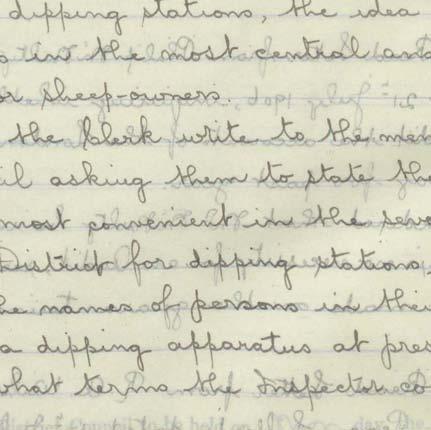 dipping stations, the idea
in the most central and
or sheep-owners.
the Clerk write to the mem
il asking them to state the
most convenient in the seve
District for dipping stations,
he names of persons in thei
a dipping apparatus at pres
what terms the Inspector co